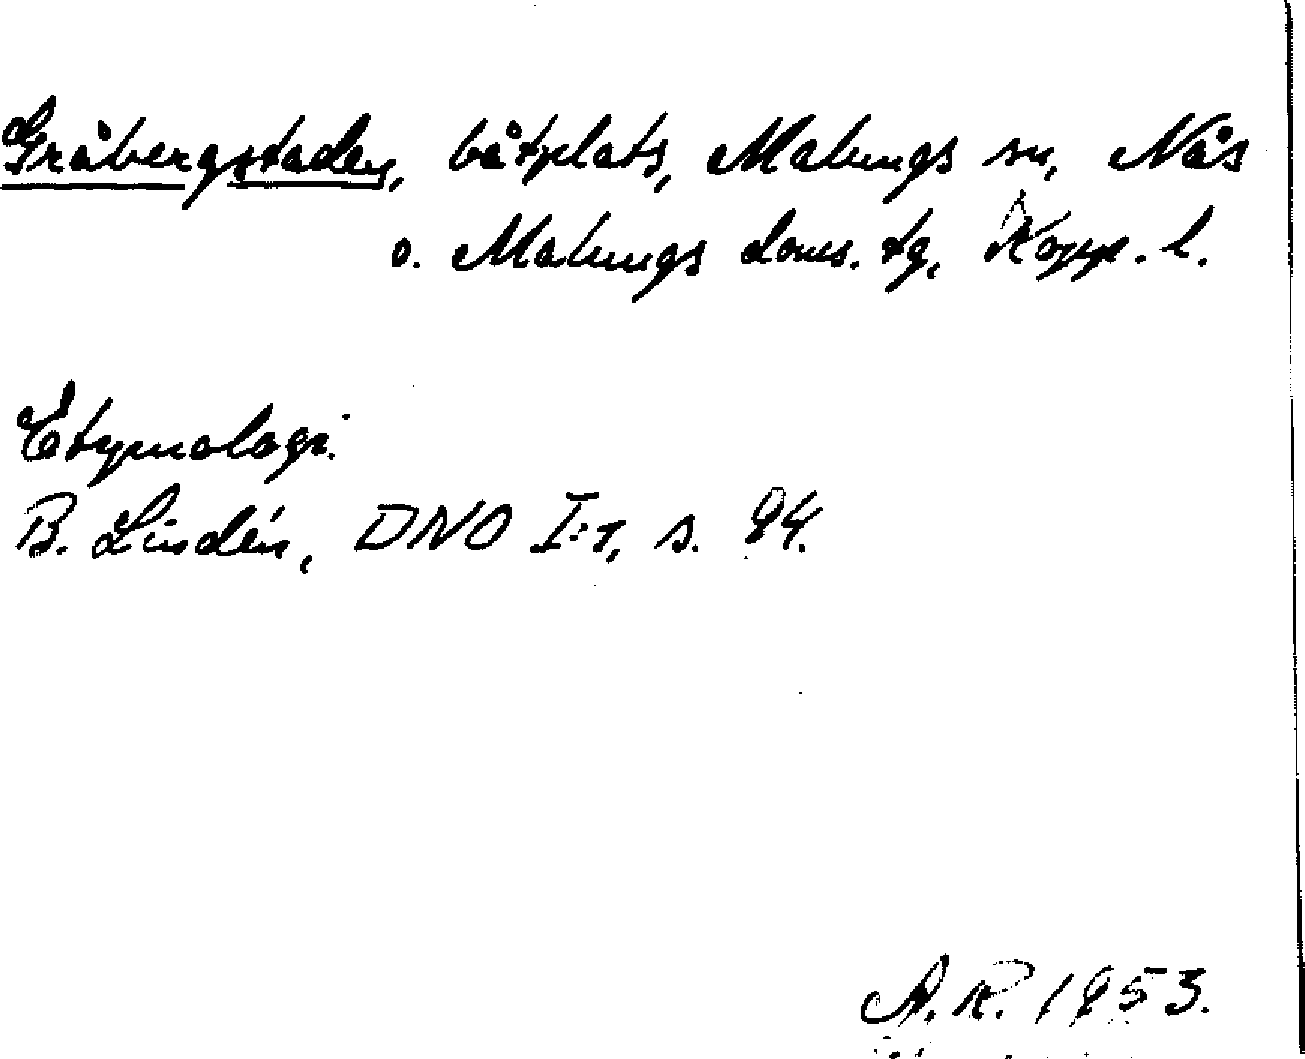 Gråbergstaden, båtplats, Malungs sn, Nås
o. Malungs doms. tg, Kopp. l.
Etymologi.
B. Lindén, DNO I:1, s. 94.
A. R. 1953.